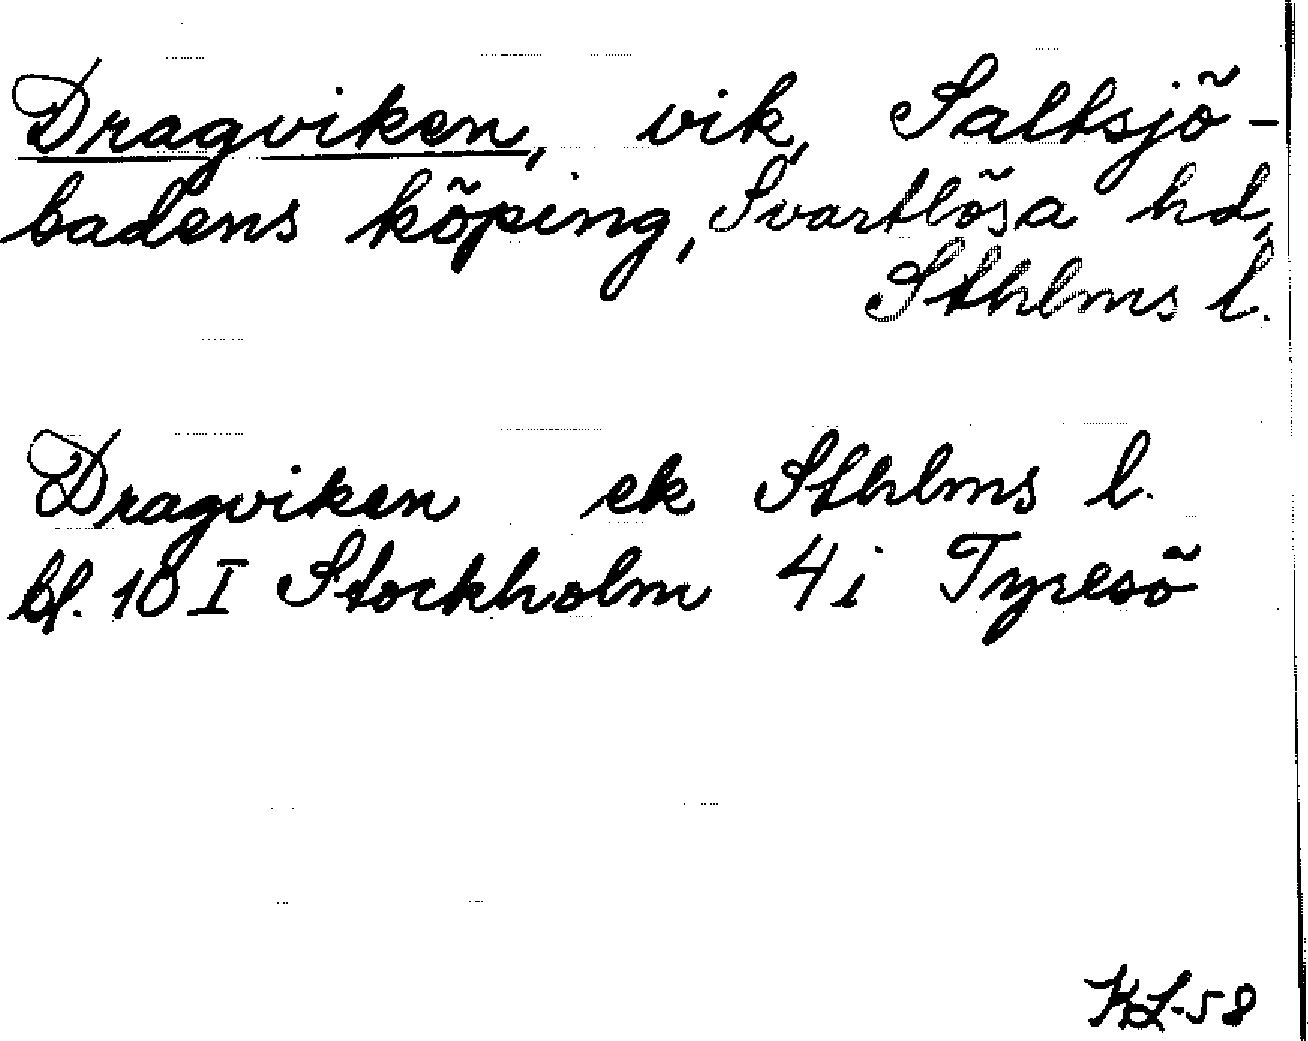 Dragviken, vik, Saltsjö-
badens köping, Svartlösa hd,
Sthlms l.
Dragviken ek Sthlms l.
bl. 10 I Stockholm 4i Tyresö
KL-58